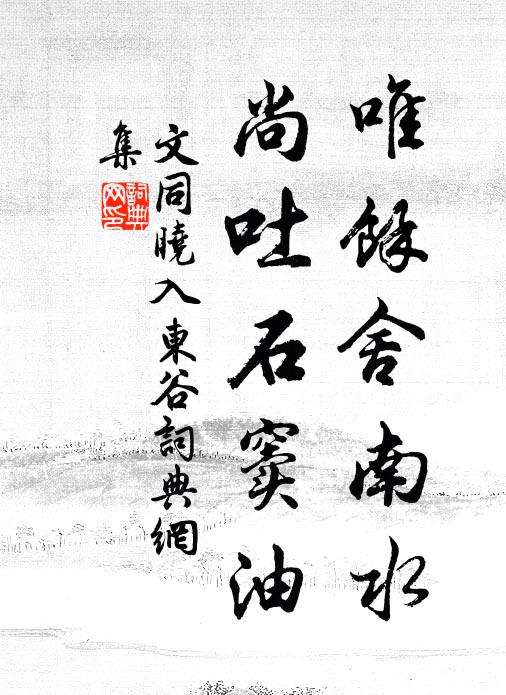 唯餘舍南水
尚吐石竇油
文同曉入東谷詞典網
集
詞典
網印